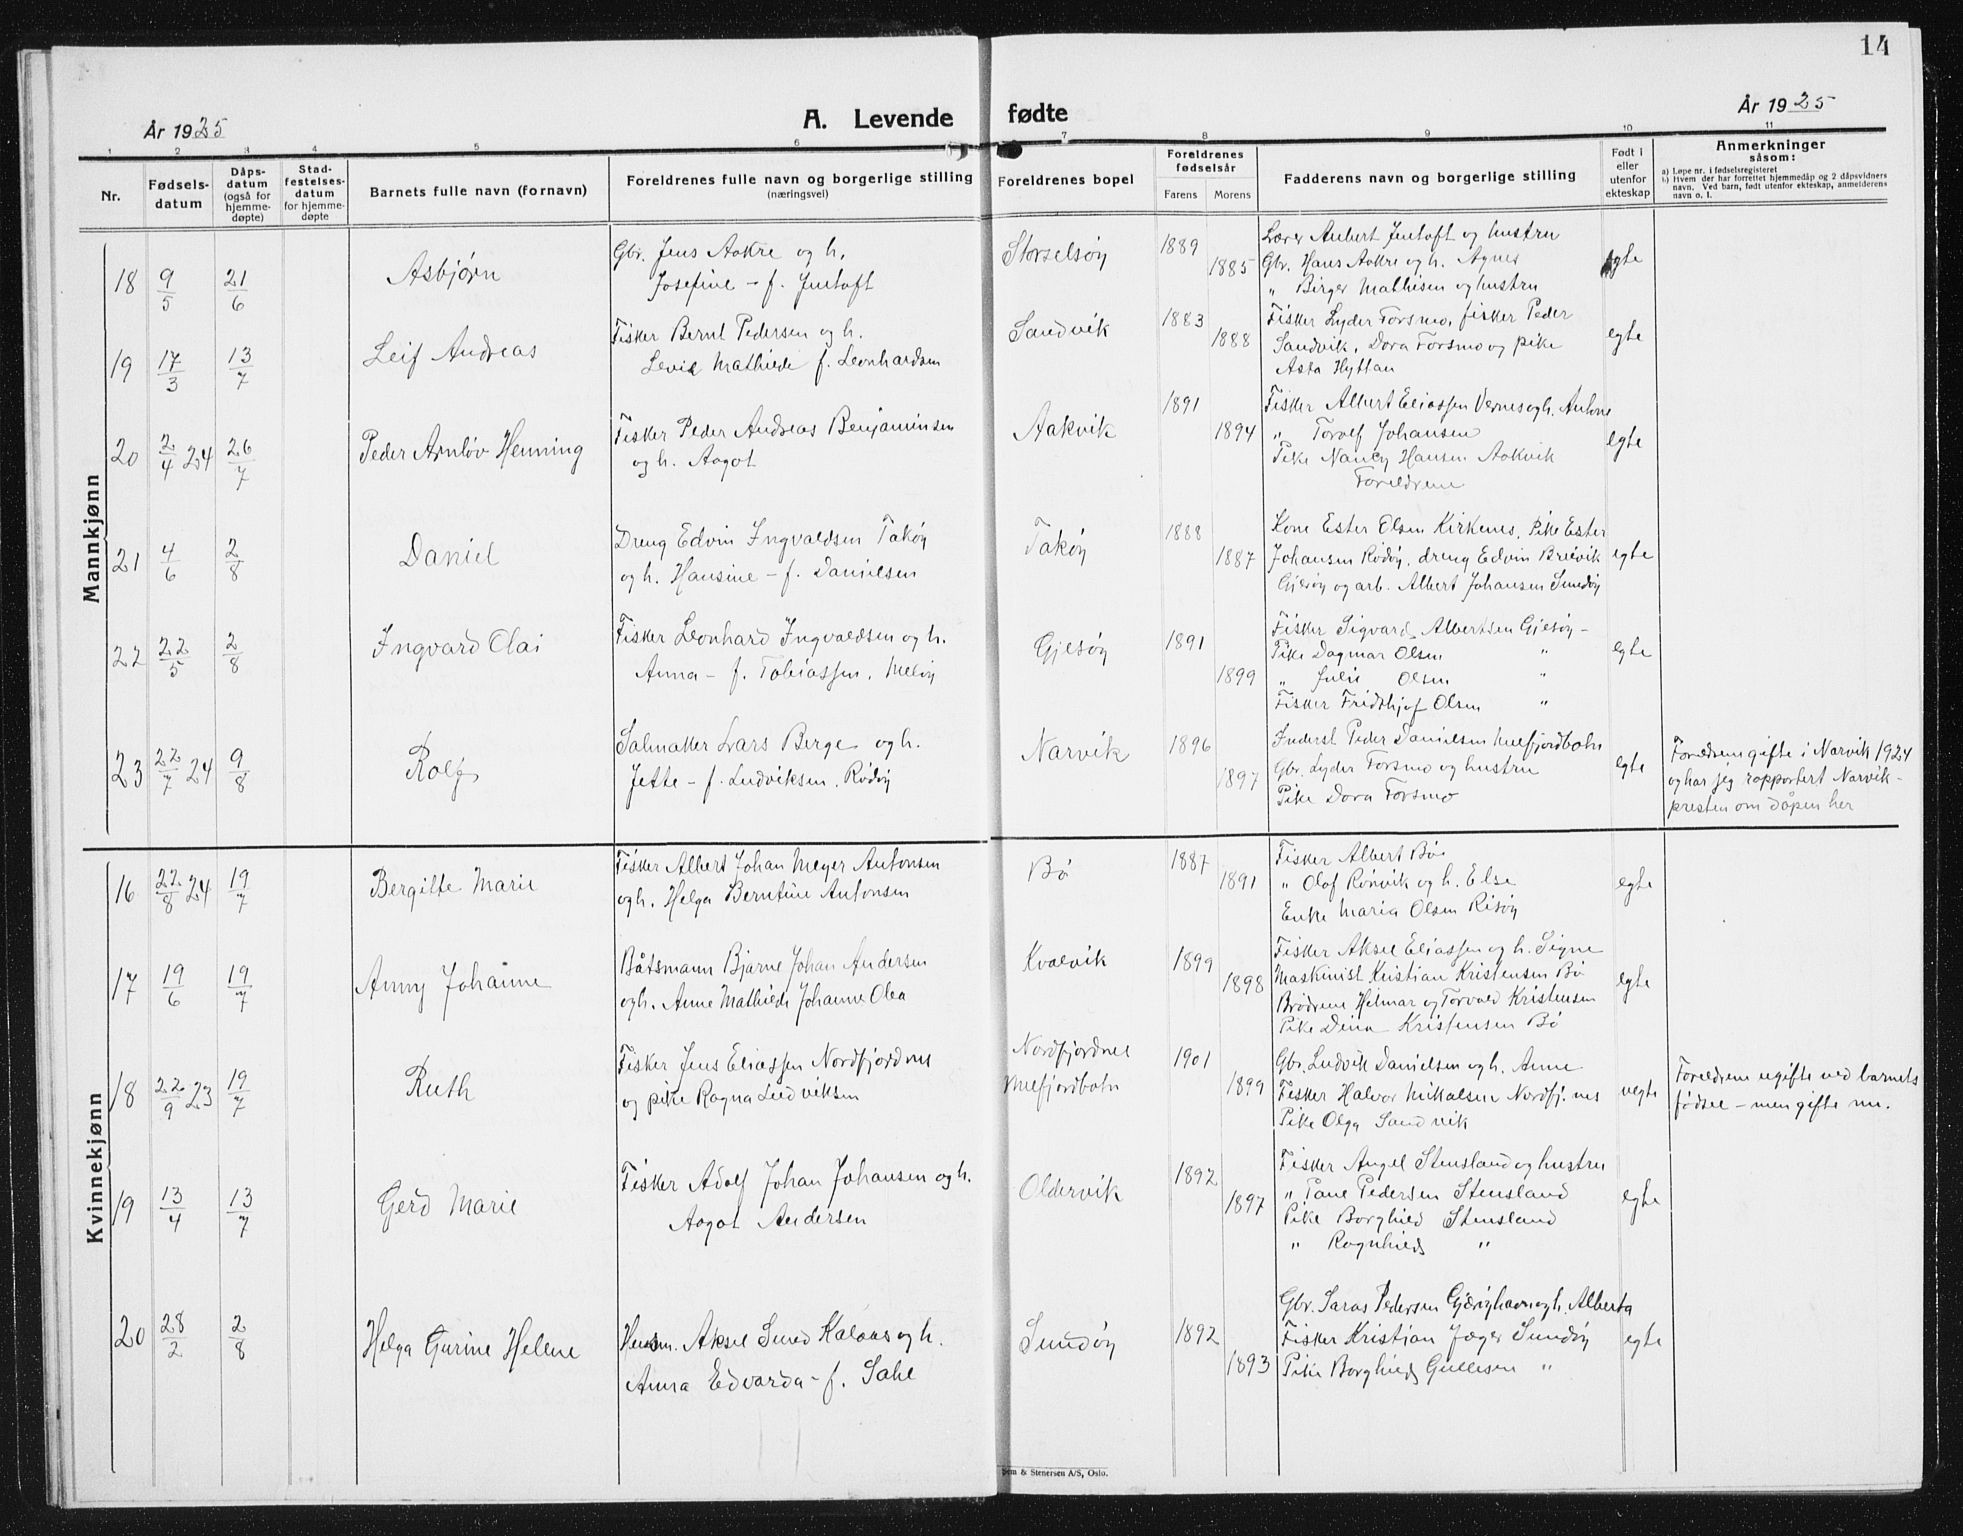 14
År 1925
A. Levende fødte
År 1925
1 2 3 4 5 6 7 8 9 10 11
Nr.
Fødsels-
datum
Dåps-
datum
(også for
hjemme-
døpte)
Stad-
festelses-
datum
for hjemme-
døpte
Barnets fulle navn (fornavn)
Foreldrenes fulle navn og borgerlige stilling
(næringsvei)
Foreldrenes bopel
Foreldrenes
fødselsår
Farens Morens
Fadderens navn og borgerlige stilling
Født i
eller
utenfor
ekteskap
Anmerkninger
såsom:
a) Løpe nr. i fødselsregisteret
b) Hvem der har forrettet hjemmedåp og 2 dåpsvidners
navn. Ved barn, født utenfor ekteskap, anmelderens
navn o. l.
Mannkjønn
18 9/5 21/6 Asbjørn
Gbr. Jens Aakre og h.
Josefine - f. Jentoft
Storselsøy 1889 1885
Lærer Anbert Jentoft og hustru
Gbr. Hans Aakre og h. Agnes
" Birger Mathisen og hustru
egte
19 17/3 13/7 Leif Andreas
Fisker Bernt Pedersen og h.
Mathilde f. Leonhardsen
Sandvik 1883 1888
Fisker Lyder Forsmo, fisker Peder
Sandvik, Dora Forsmo og pike
Asta Hyttan
egte
20 2/4 24 26/7 Peder Arnløv Henning
Fisker Peder Andreas Benjaminsen
og h. Aagot
Aakvik 1891 1894
Fisker Albert Eliassen Vernes og h. Antone
" Torolf Johansen
Pike Nancy Hansen Aakvik
Foreldrene
egte
21 4/6 2/8 Daniel
Dreng Edvin Ingvaldsen Takøy
og h. Hansine - f. Danielsen
Takøy 1888 1887
Kone Ester Olsen Kirkenes, Pike Ester
Johansen Rødøy, dreng Edvin Breivik
Gjesøy og arb. Albert Johansen Sundøy
egte
22 22/5 2/8 Ingvard Olai
Fisker Leonhard Ingvaldsen og h.
Anna - f. Tobiassen, Meløy
Gjesøy 1891 1899
Fisker Sigvard Albertsen Gjesøy -
Pike Dagmar Olsen "
" Julie Olsen "
Fisker Fridthjof Olsen "
egte
23 22/7 24 9/8 Rolf
Salmaker Lars Berge og h.
Jette - f. Ludviksen, Rødøy
Narvik 1896 1897
Inderst Peder Danielsen Melfjordbotn
Gbr. Lyder Forsmo og hustru
Pike Dora Forsmo
egte
Foreldrene gifte i Narvik 1924
og har jeg rapportert Narvik-
presten om dåpen her
Kvinnekjønn
16 22/8 24 19/7 Bergitte Marie
Fisker Albert Johan Meyer Antonsen
og h. Helga Berntine Antonsen
Bø 1887 1891
Fisker Albert Bø
" Olaf Rønvik og h. Else
Enke Maria Olsen Risøy
egte
17 19/6 19/7 Anny Johanne
Båtsmann Bjarne Johan Andersen
og h. Anne Mathilde Johanne Olea
Kvalvik 1899 1898
Fisker Aksel Eliassen og h. Signe
Maskinist Kristian Kristensen Bø
Brødrene Hilmar og Torvald Kristensen
Pike Dina Kristensen Bø
egte
18 22/9 23 19/7 Ruth
Fisker Jens Eliassen Nordfjordnes
og pike Ragna Ludviksen
Nordfjordnes
Melfjordbotn
1901 1899
Gbr. Ludvik Danielsen og h. Anne
Fisker Halvor Mikalsen Nordfj. nes
Pike Olga Sandvik
uegte
Foreldrene ugifte ved barnets
fødsel - men gifte nu.
19 13/4 13/7 Gerd Marie
Fisker Adolf Johan Johansen og h.
Aagot Andersen
Oldervik 1892 1897
Fisker Angel Stensland og hustru
" Pedersen Stensland
Pike Borghild Stensland
" Ragnhild "
egte
20 28/2 2/8 Helga Gurine Helene
Husm. Aksel Sund Kalaas og h.
Anna Edvarda - f. Sahl
Sundøy 1892 1893
Gbr. Saras Pedersen og h. Alberta
Fisker Kristian Jæger Sundøy
Pike Borghild Gullesen "
egte
& Stenersen A/S, Oslo.